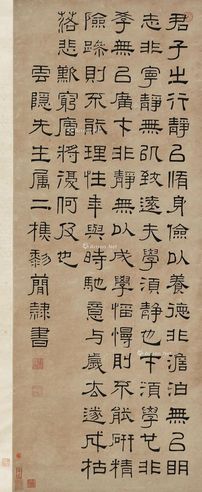 君子之行靜㠯脩身儉以養德非澹泊無㠯明
志非寧靜無㠯致遠夫學須靜也才須學也非
學無㠯廣才非靜無以成學慆慢則不能研精
險躁則不能理性年與時馳意与歲去遂成枯
落悲歎窮廬將復何及也
雲隱先生屬二樵黎簡隸書